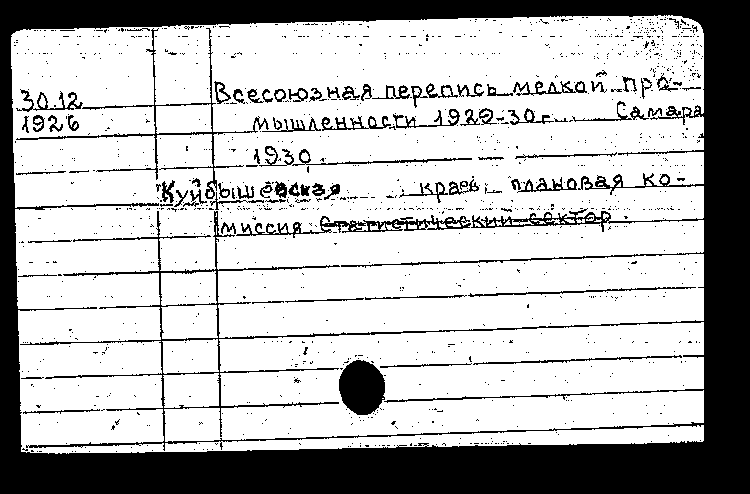 30.12 Всесоюзная перепись мелкой про-
1926 мышленности 1929-30г... Самара
1930.
"Куйбышевская краев. плановая ко-
миссия. Статистический сектор.